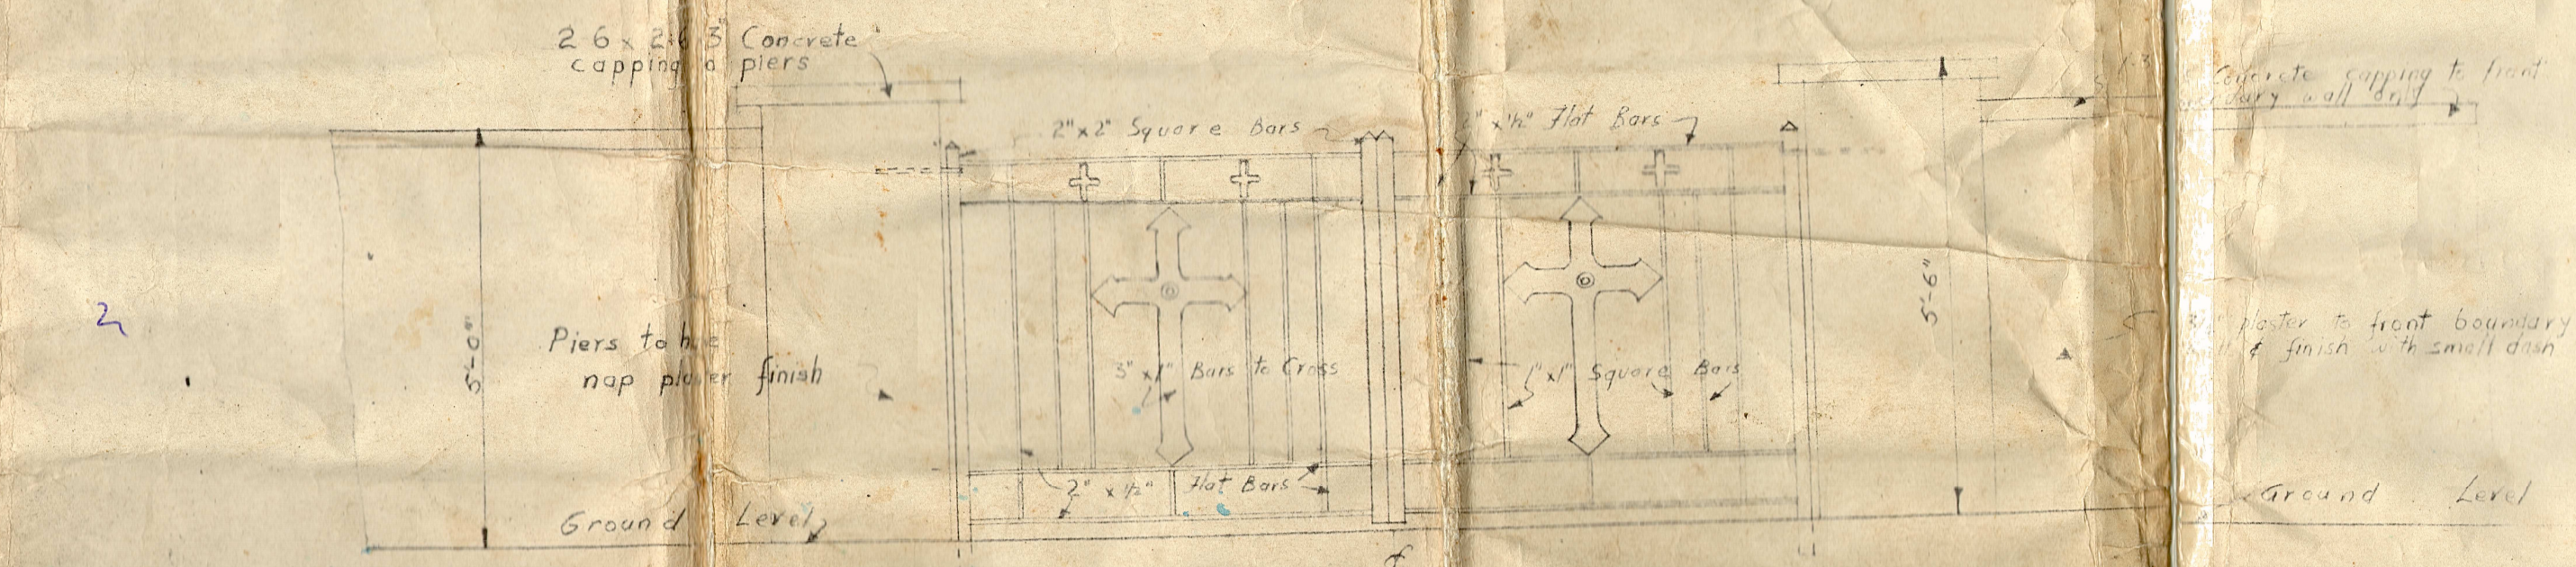 2 6 x 2 6 3" Concrete
capping piers
2"x2" Square Bars
x½" Flat Bars
Concrete capping to front
wall only
5'-0"
5'-6"
Piers to
nap finish
3" x1" Bars to Cross
1"x1" Square Bars
plaster to front boundary
& finish with small dash
2" x ½" Flat Bars
Ground Level
Ground Level
2